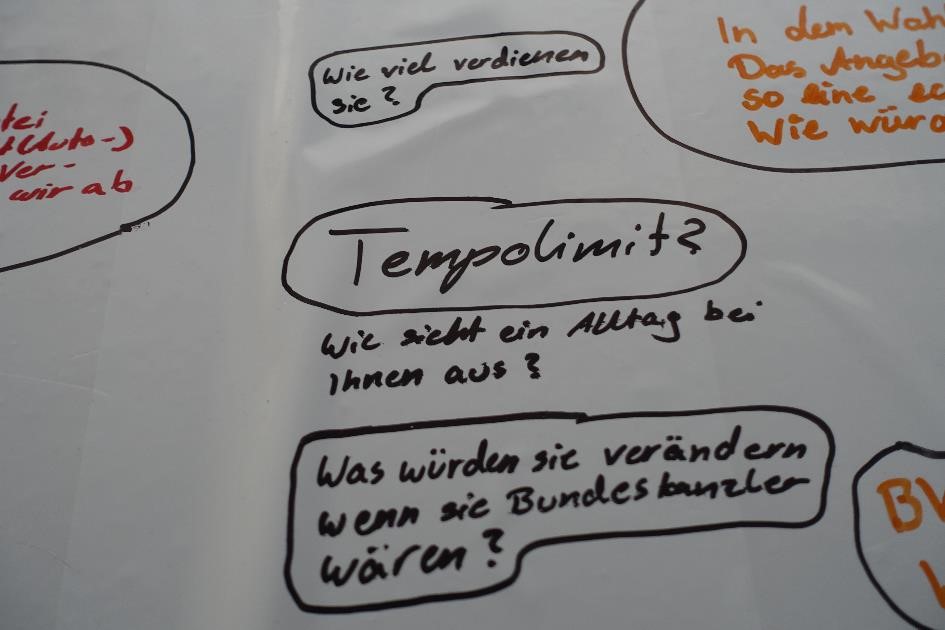 Wie viel verdienen
sie?
In dem
Das
so eine
Wie
wir ab
Tempolimit?
Wie sieht ein Alltag bei
Ihnen aus?
Was würden sie verändern
wenn sie Bundeskanzler
wären?